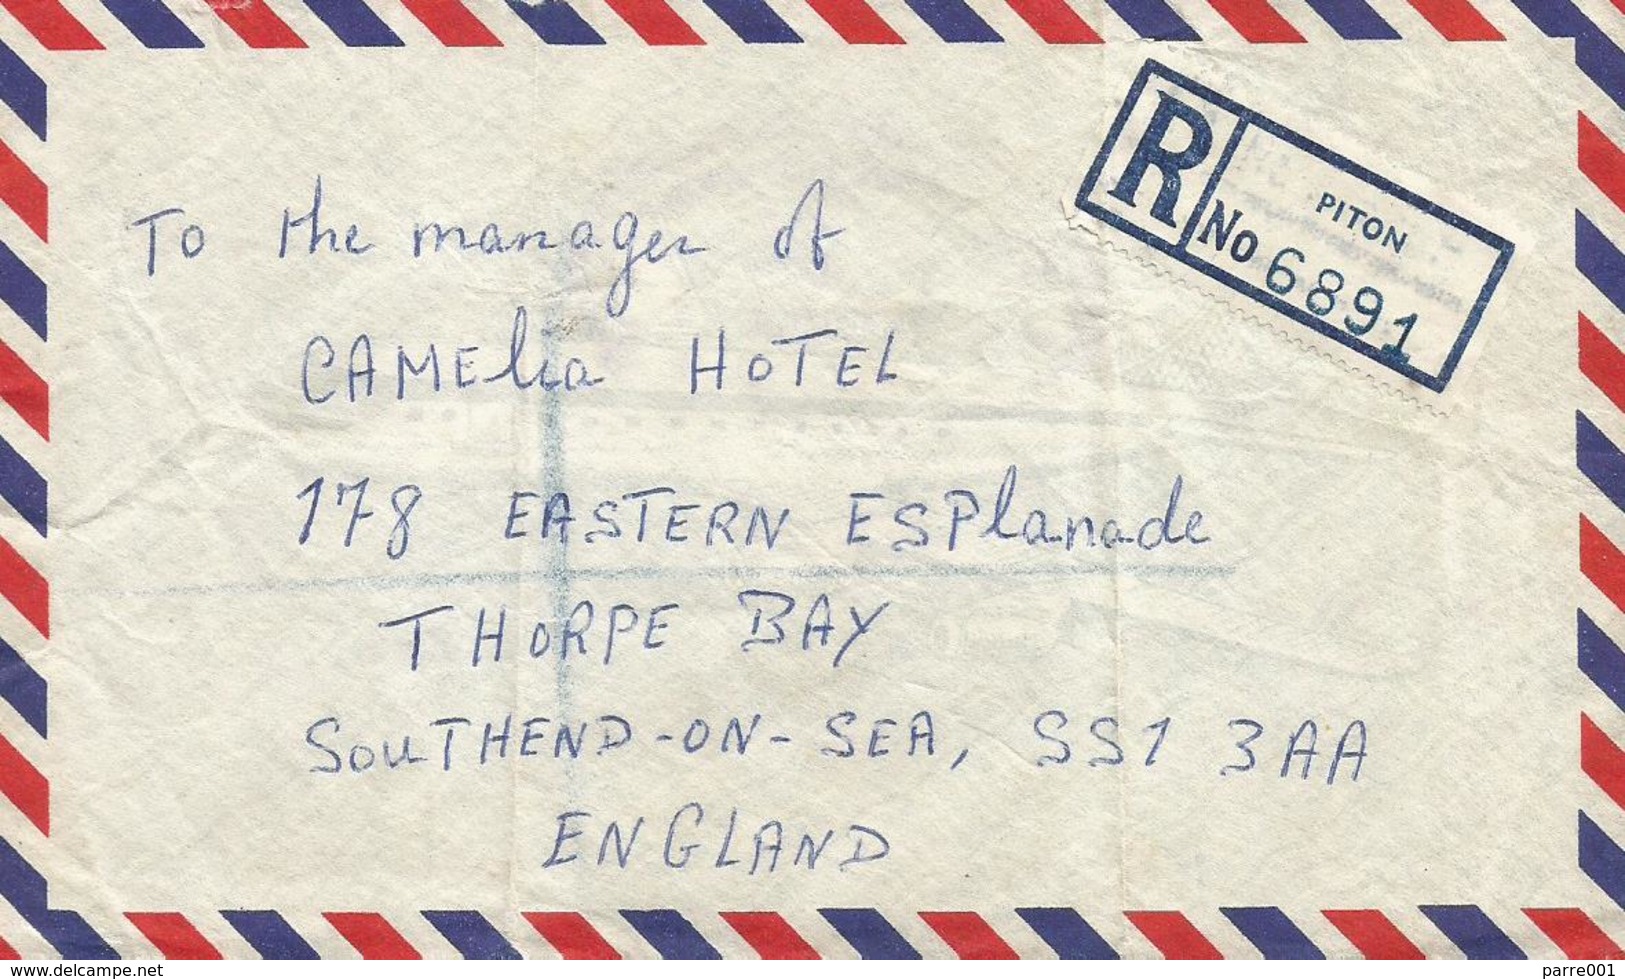 R
PITON
No 6891
To the manager of
CAMElia HOTEL
178 EASTERN ESPlanade
THORPE BAY
SOUTHEND-ON-SEA, SS1 3AA
ENGLAND
www.delcampe.net
parre001